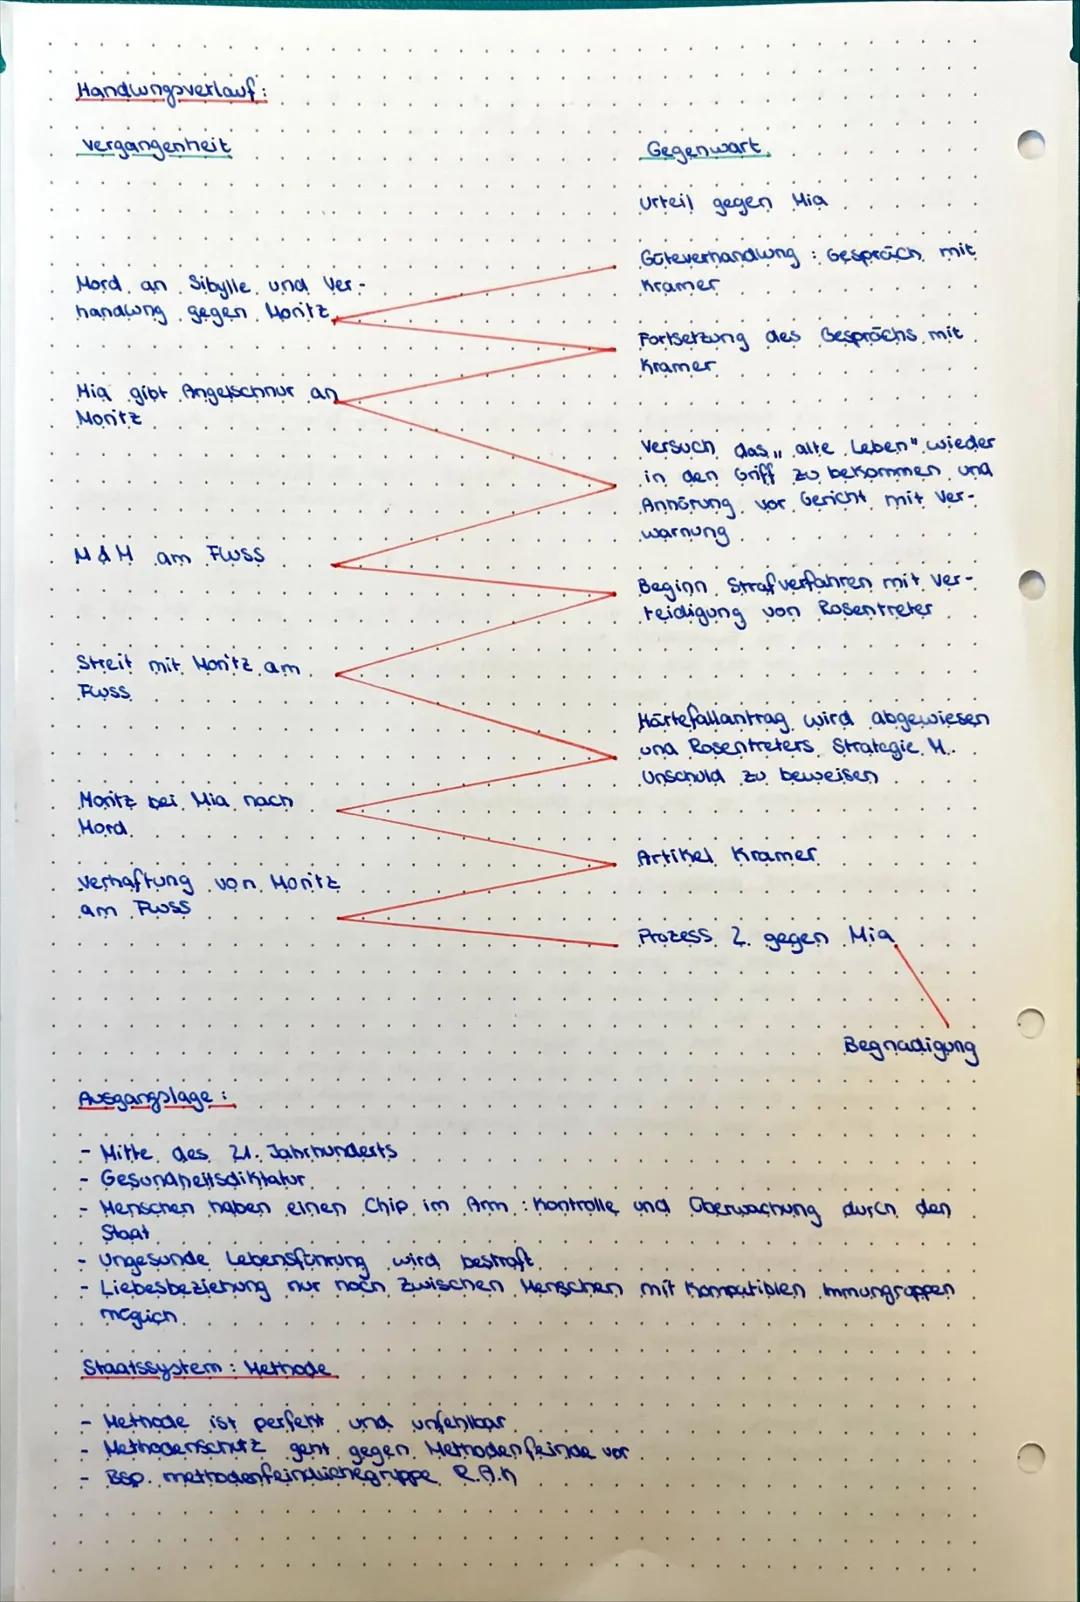 Handlungsverlauf:
Vergangenheit
Gegenwart
Urteil gegen Mia
Güteverhandlung : Gespräch mit
Kramer
Mord an Sibylle und Ver-
handlung gegen Moritz
Fortsetzung des Gesprächs mit
Kramer
Mia gibt Angelschnur an
Moritz
Versuch das „alte Leben" wieder
in den Griff zu bekommen und
Anhörung vor Gericht mit Ver-
warnung
M & M am Fluss
Beginn Strafverfahren mit Ver-
teidigung von Rosentreter
Streit mit Moritz am
Fluss
Härtefallantrag wird abgewiesen
und Rosentreters Strategie M.
Unschuld zu beweisen
Moritz bei Mia nach
Mord
Artikel Kramer
Verhaftung von Moritz
am Fluss
Prozess 2. gegen Mia
Begnadigung
Ausgangslage :
- Mitte des 21. Jahrhunderts
- Gesundheitsdiktatur
- Menschen haben einen Chip im Arm : Kontrolle und Überwachung durch den
Staat
- Ungesunde Lebensführung wird bestraft
- Liebesbeziehung nur noch zwischen Menschen mit kompatiblen Immungruppen
möglich
Staatssystem : Methode
- Methode ist perfekt und unfehlbar
- Methodenschutz geht gegen Methodenfeinde vor
- Bsp. methodenfeindlichegruppe R.A.K